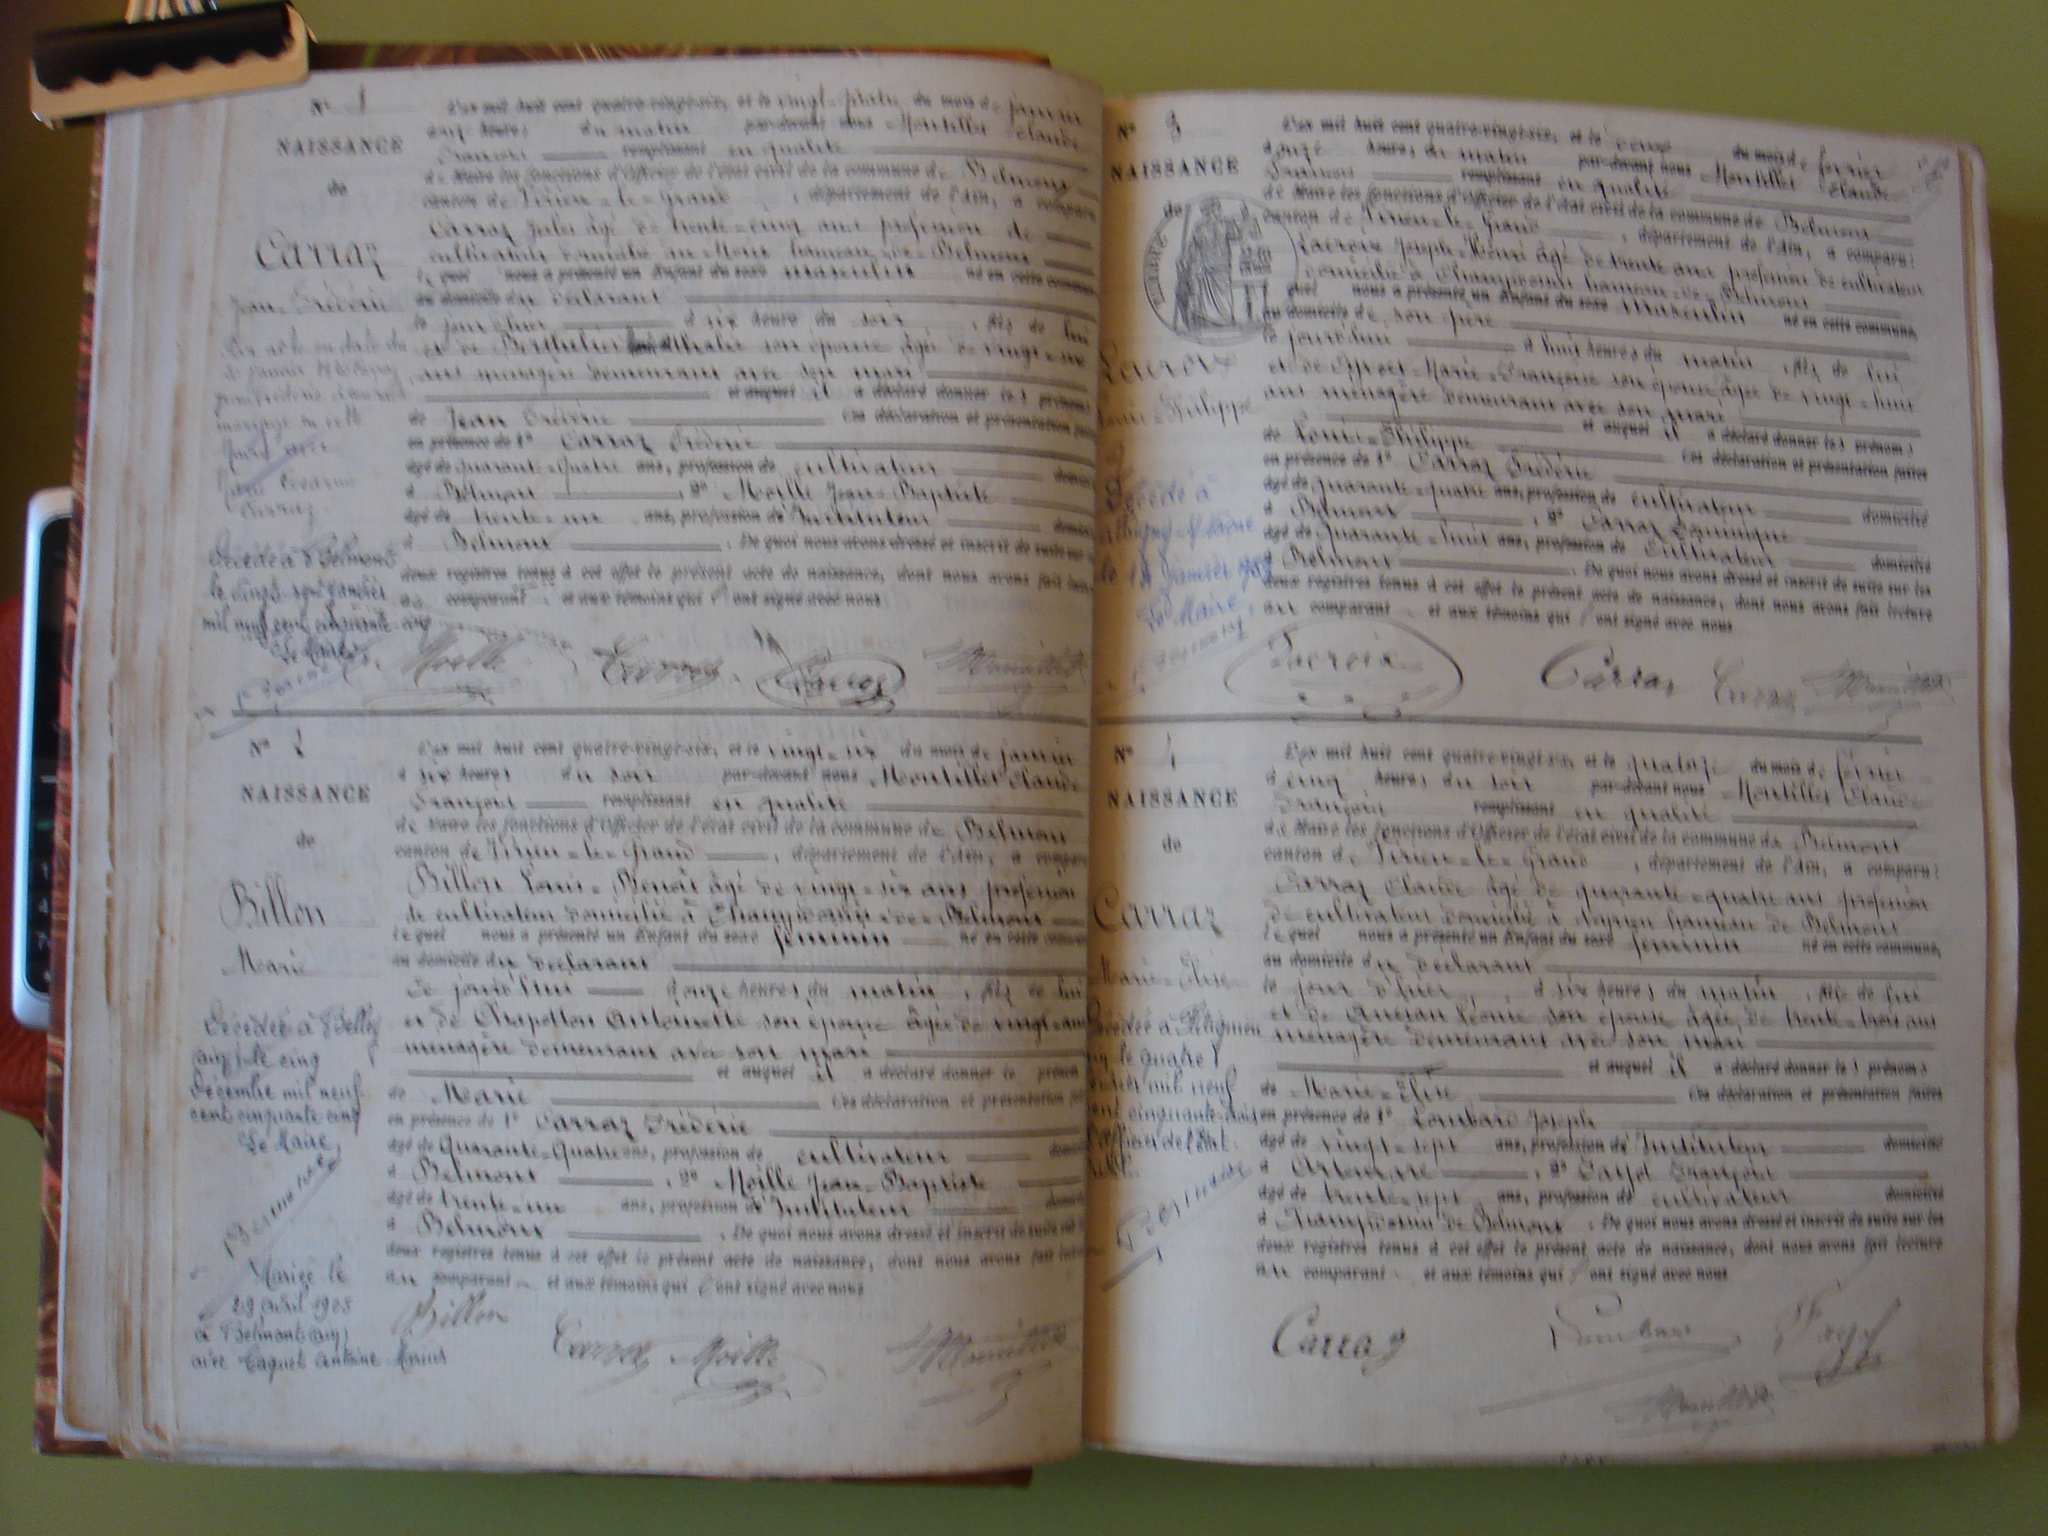 N° 1
NAISSANCE
de
Carraz
Jean Frédéric
L'an mil huit cent quatre-vingt-six, et le vingt-quatre du mois de janvier
onze heures du matin par-devant nous Montillet Claude
François remplissant en qualité
de Maire les fonctions d'Officier de l'état civil de la commune de Belmont
canton de Virieu-le-Grand, département de l'Ain, a comparu
Carraz Jules âgé de trente-cinq ans profession de
cultivateur domicilié au hameau de Belmont
lequel nous a présenté un Enfant du sexe masculin né en cette commune
au domicile du déclarant
le jour d'hier à six heures du soir, fils de lui
et de Berthelier Athalie son épouse âgée de vingt-six
ans ménagère demeurant avec son mari
et auquel il a déclaré donner les prénoms
de Jean Frédéric Ces déclaration et présentation
en présence de 1° Carraz Frédéric
âgé de quarante-quatre ans, profession de cultivateur
à Belmont, 2° Moille Jean-Baptiste
âgé de trente-un ans, profession d'Instituteur
à Belmont. De quoi nous avons dressé et inscrit de suite sur
deux registres tenus à cet effet le présent acte de naissance, dont nous avons fait
au comparant et aux témoins qui ont signé avec nous
Décédé à Belmont
mil neuf cent cinquante
Le Maire,
Moille Carraz Carraz
N° 2
NAISSANCE
de
Billon
Marie
L'an mil huit cent quatre-vingt-six, et le vingt-six du mois de janvier
à six heures du soir par-devant nous Montillet Claude
François remplissant en qualité
de Maire les fonctions d'Officier de l'état civil de la commune de Belmont
canton de Virieu-le-Grand, département de l'Ain, a comparu
Billon Louis-Benoît âgé de vingt-six ans profession
de cultivateur domicilié à Champdossin de Belmont
lequel nous a présenté un Enfant du sexe féminin né en cette commune
au domicile du déclarant
ce jourd'hui à onze heures du matin, fils de lui
et de Chapollon Antoinette son épouse âgée de vingt-ans
ménagère demeurant avec son mari
et auquel il a déclaré donner le prénom
de Marie Ces déclaration et présentation
en présence de 1° Carraz Frédéric
âgé de Quarante-Quatre ans, profession de cultivateur
à Belmont, 2° Moille Jean-Baptiste
âgé de trente-un ans, profession d'Instituteur
à Belmont. De quoi nous avons dressé et inscrit de suite
deux registres tenus à cet effet le présent acte de naissance, dont nous avons fait
au comparant et aux témoins qui ont signé avec nous
Décédée à Belley
Ain, le cinq
Décembre mil neuf
cent cinquante cinq
Le Maire,
Marié le
29 avril 1905
à Belmont (Ain)
avec Caguet Antoine Marius
Billon Carraz Moille
N° 3
NAISSANCE
de
Lacroix
Louis-Philippe
L'an mil huit cent quatre-vingt-six, et le deux du mois de février
à onze heures du matin par-devant nous Montillet Claude
François remplissant en qualité
de Maire les fonctions d'Officier de l'état civil de la commune de Belmont
canton de Virieu-le-Grand, département de l'Ain, a comparu:
Lacroix Joseph-Henri âgé de trente ans profession de cultivateur
domicilié à Champdossin hameau de Belmont
lequel nous a présenté un Enfant du sexe masculin né en cette commune,
au domicile de son père
le jourd'hui à huit heures du matin, fils de lui
et de Marie-Françoise son épouse âgée de vingt-huit
ans ménagère demeurant avec son mari
et auquel il a déclaré donner les prénoms
de Louis-Philippe Ces déclaration et présentation faites
en présence de 1° Carraz Frédéric
âgé de quarante-quatre ans, profession de cultivateur domicilié
à Belmont, 2° Carraz Dominique
âgé de Quarante-huit ans, profession de Cultivateur domicilié
à Belmont. De quoi nous avons dressé et inscrit de suite sur les
deux registres tenus à cet effet le présent acte de naissance, dont nous avons fait lecture
au comparant et aux témoins qui ont signé avec nous
Décédé à
Le Maire,
Lacroix Carraz Carraz
N° 4
NAISSANCE
de
Carraz
Marie-Elise
L'an mil huit cent quatre-vingt-six, et le quatorze du mois de février
à cinq heures du soir par-devant nous Montillet Claude
François remplissant en qualité
de Maire les fonctions d'Officier de l'état civil de la commune de Belmont
canton de Virieu-le-Grand, département de l'Ain, a comparu:
Carraz Claude âgé de quarante-quatre ans profession
de cultivateur domicilié à hameau de Belmont
lequel nous a présenté un Enfant du sexe féminin né en cette commune,
au domicile du déclarant
le jour d'hier, à six heures du matin, fils de lui
et de Léonie son épouse âgée de trente-trois ans
ménagère demeurant avec son mari
et auquel il a déclaré donner les prénoms
de Marie-Elise Ces déclaration et présentation faites
en présence de 1° Lombard Joseph
âgé de vingt-sept ans, profession d'Instituteur domicilié
à Artemare, 2° Fayol François
âgé de trente-sept ans, profession de cultivateur domicilié
à Champdossin de Belmont. De quoi nous avons dressé et inscrit de suite sur les
deux registres tenus à cet effet le présent acte de naissance, dont nous avons fait lecture
au comparant et aux témoins qui ont signé avec nous
le quatre
mil neuf
cent cinquante-trois
l'officier de l'Etat
Carraz Lombard